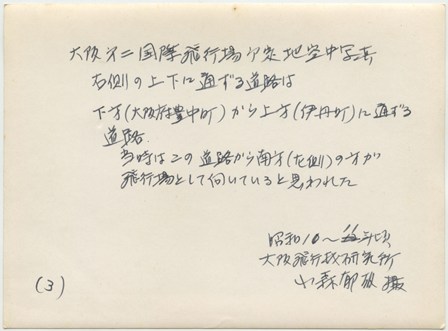 大阪第二国際飛行場予定地空中写真
右側の上下に通ずる道路は
下方(大阪府豊中町)から上方(伊丹町)に通ずる
道路
当時はこの道路から南方(左側)の方が
飛行場として向いていると思われた
昭和10〜11年頃
大阪飛行機研究所
小森郁雄 撮
(3)